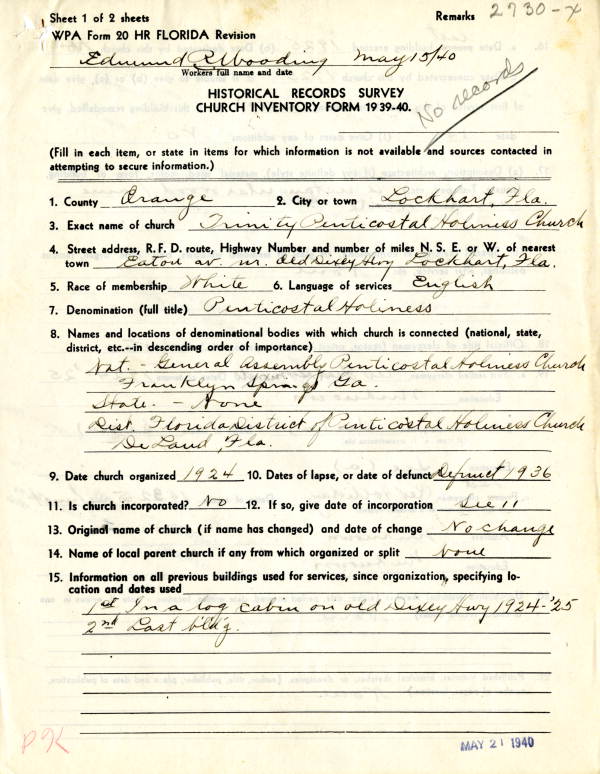 Sheet 1 of 2 sheets Remarks 2730-X
WPA Form 20 HR FLORIDA Revision
Edmund R. Wooding May 15/40
Workers full name and date
HISTORICAL RECORDS SURVEY
CHURCH INVENTORY FORM 1939-40.
No records
(Fill in each item, or state in items for which information is not available and sources contacted in
attempting to secure information.)
1. County Orange 2. City or town Lockhart, Fla.
3. Exact name of church Trinity Penticostal Holiness Church
4. Street address, R. F. D. route, Highway Number and number of miles N. S. E. or W. of nearest
town Eaton av. nr. Old Dixey Hwy Lockhart, Fla.
5. Race of membership White 6. Language of services English
7. Denomination (full title) Penticostal Holiness
8. Names and locations of denominational bodies with which church is connected (national, state,
district, etc.--in descending order of importance)
Nat. - General Assembly Penticostal Holiness Church
Franklyn Springs Ga.
State. - None
Dist. Florida District of Penticostal Holiness Church
De Land, Fla.
9. Date church organized 1924 10. Dates of lapse, or date of defunct Defunct 1936
11. Is church incorporated? No 12. If so, give date of incorporation See 11
13. Original name of church (if name has changed) and date of change No change
14. Name of local parent church if any from which organized or split None
15. Information on all previous buildings used for services, since organization, specifying lo-
cation and dates used
1st In a log cabin on old Dixey Hwy 1924-'25
2nd Last b'ld'g.
PK
MAY 21 1940